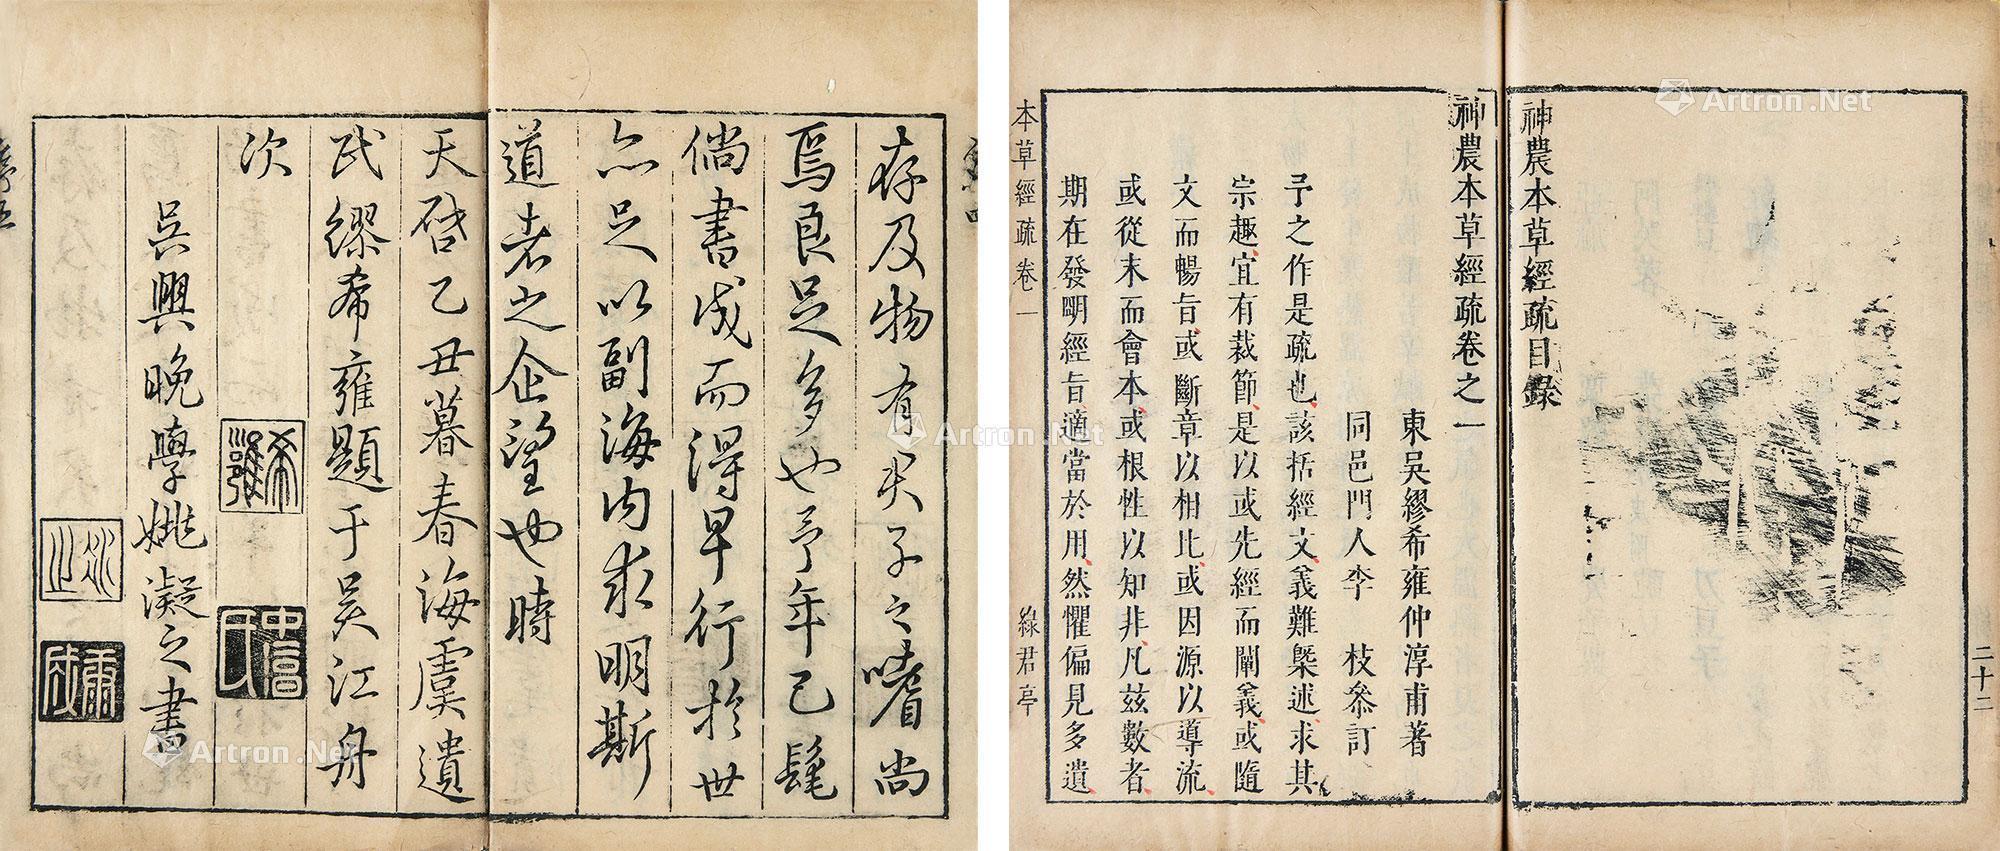 存及物有犬子之嗜尚
焉良足多也予年已髦
倘書成而得早行於世
亦足以副海内求明斯
道者之企望也時
天啓乙丑暮春海虞遺
民繆希雍題于吴江舟
次
吳興晚學姚凝之書
希雍
神農本草經疏目錄
二十二
神農本草經疏卷之一
東吳繆希雍仲淳甫著
同邑門人李 枝叅訂
予之作是疏也該括經文義難槩述求其
宗趣宜有裁節是以或先經而闡義或隨
文而暢旨或斷章以相比或因源以導流
或從末而會本或根性以知非凡茲數者
期在發明經旨適當於用然懼偏見多遺
本草經疏卷一
綠君亭
Artron.Net
Artron.Net
Artron.Net
Artron.Net